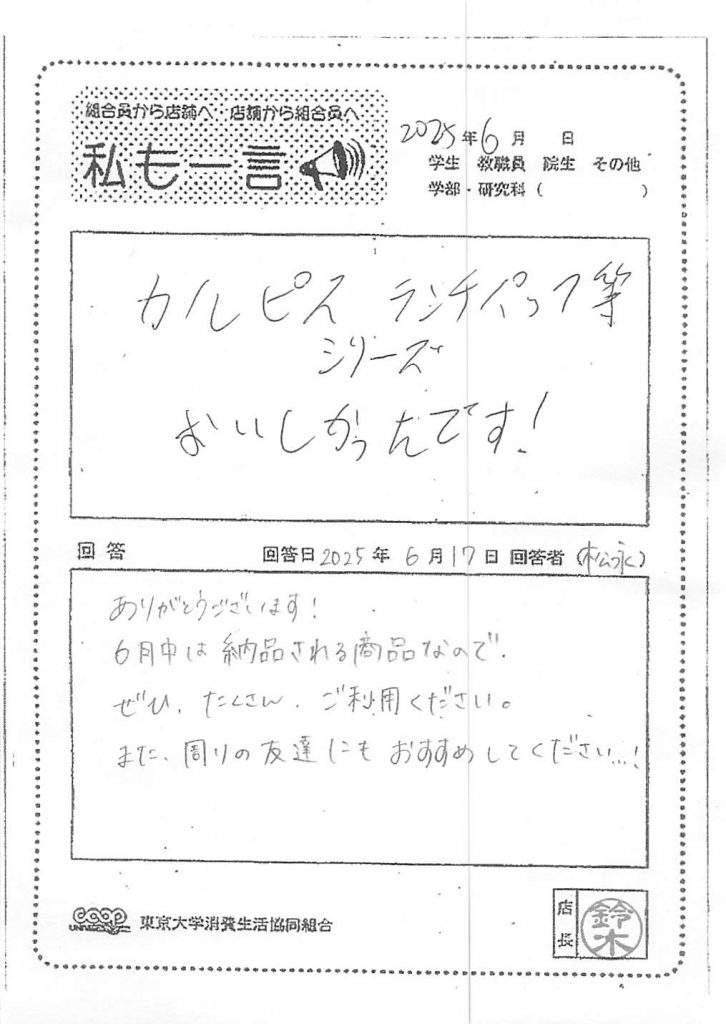 組合員から店舗へ 店舗から組合員へ
私も一言
2025年6月 日
学生 教職員 院生 その他
学部・研究科( )
カルピス ランチパック等
シリーズ
おいしかったです!
回答 回答日2025年6月17日 回答者(松永)
ありがとうございます!
6月中は納品される商品なので、
ぜひ、たくさん、ご利用ください。
また、周りの友達にもおすすめしてください…!
coop
UNIV
東京大学消費生活協同組合
店長
鈴木